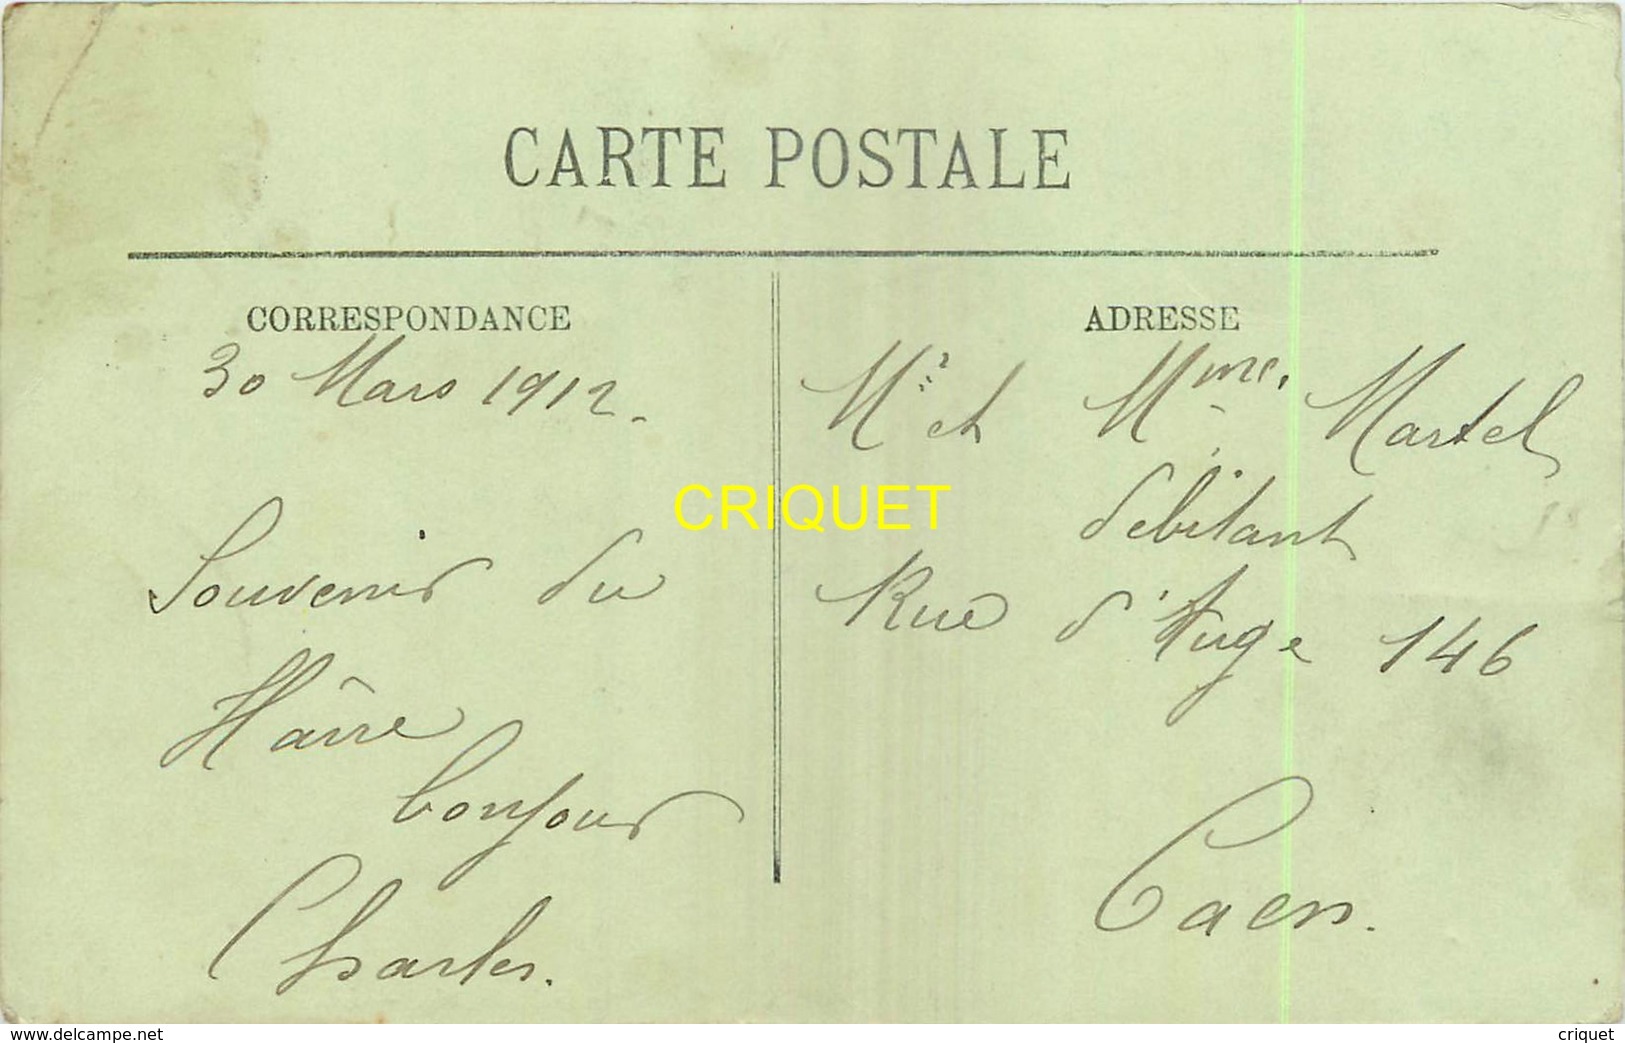 CARTE POSTALE
CORRESPONDANCE
30 Mars 1912.
Souvenir du
Hâvre
bonjour
Charles.
ADRESSE
Mr et Mme. Martel
débitant
Rue d'Auge 146
Caen.
CRIQUET
www.delcampe.net
criquet